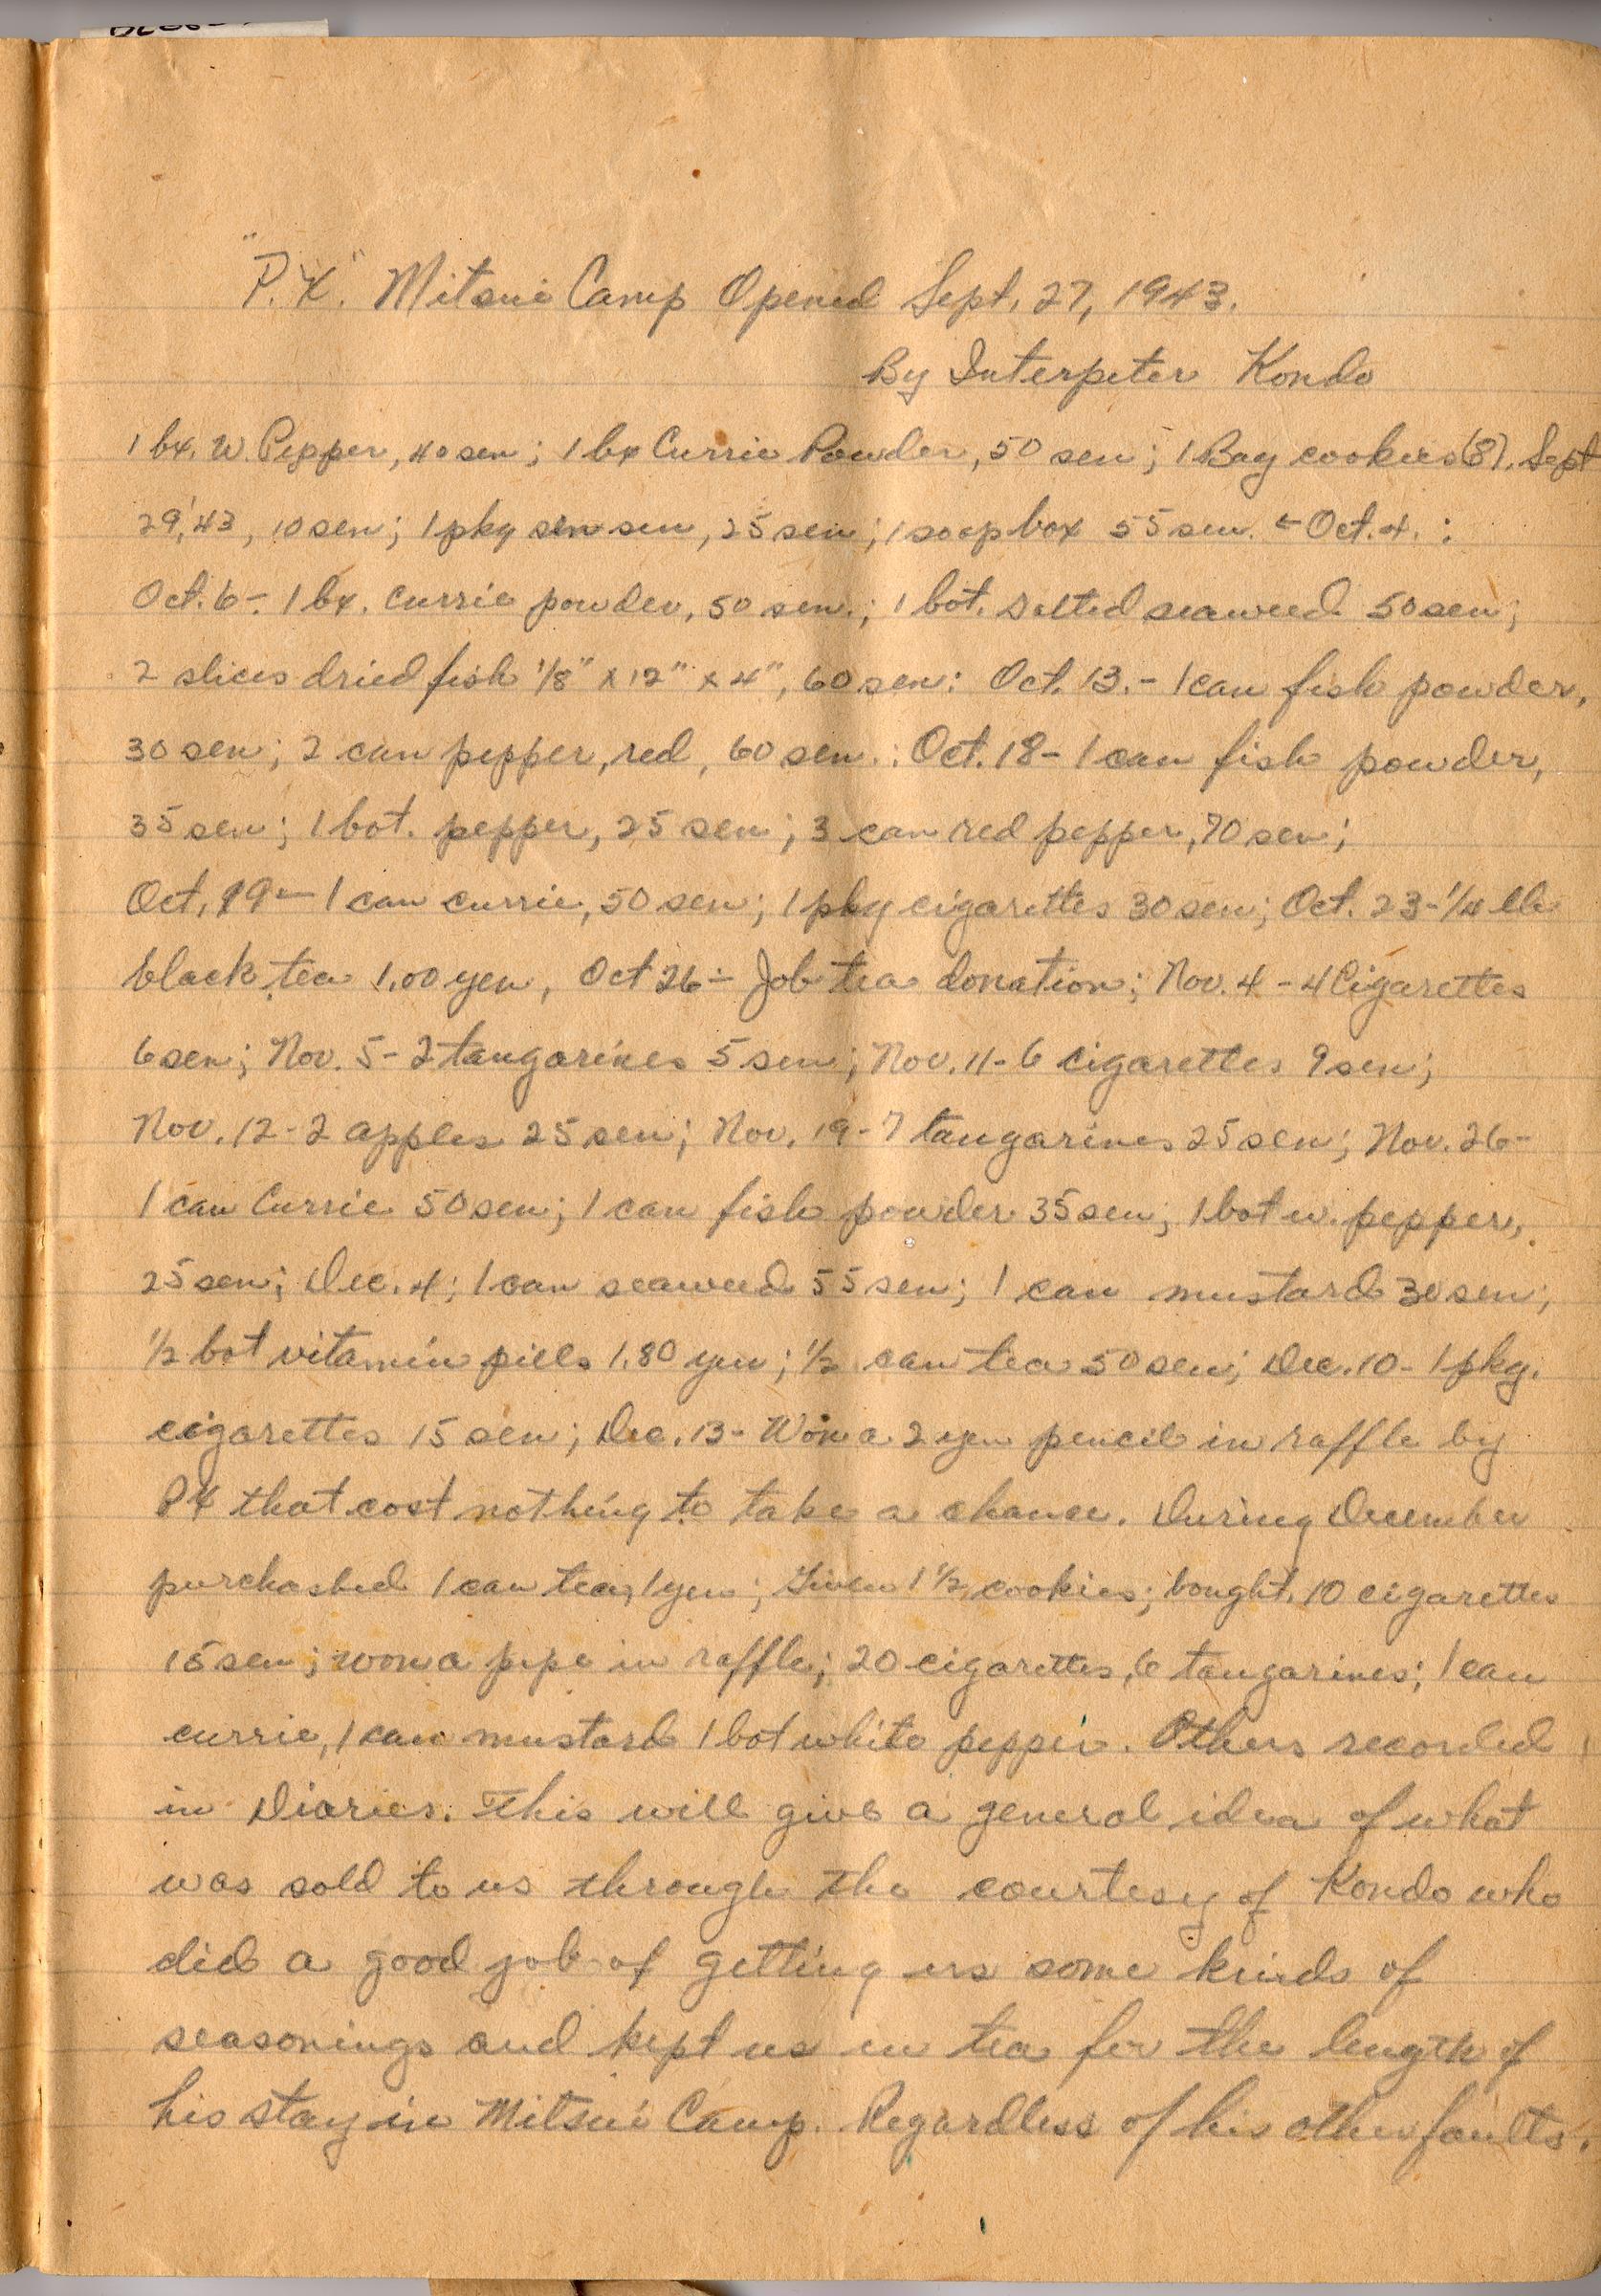 "P.X." Mitsui Camp Opened Sept. 27, 1943.
By Interpeter Kondo
1 bx. W. Pepper, 40 sen; 1 bx Currie Powder, 50 sen; 1 Bag cookies (8), Sept
29, '43, 10 sen; 1 pkg sen sen, 25 sen; 1 soap box 55 sen. - Oct. 4. :
Oct. 6 - 1 bx. Currie powder, 50 sen.; 1 bot. salted seaweed 50 sen;
2 slices dried fish 1/8" x 12" x 4", 60 sen: Oct. 13. - 1 can fish powder,
30 sen; 2 can pepper, red, 60 sen. : Oct. 18 - 1 can fish powder,
35 sen; 1 bot. pepper, 25 sen; 3 can red pepper, 70 sen;
Oct. 19 - 1 can currie, 50 sen; 1 pkg cigarettes 30 sen; Oct. 23 - 1/4 lb
black tea 1.00 yen, Oct 26 - Job tea donation; Nov. 4 - 4 Cigarettes
6 sen; Nov. 5 - 2 tangarines 5 sen; Nov. 11 - 6 cigarettes 9 sen;
Nov. 12 - 2 apples 25 sen; Nov. 19 - 7 tangarines 25 sen; Nov. 26 -
1 can Currie 50 sen; 1 can fish powder 35 sen; 1 bot w. pepper,
25 sen; Dec. 4; 1 can seaweed 55 sen; 1 can mustard 30 sen;
1/2 bot vitamin pills 1.80 yen; 1/2 can tea 50 sen; Dec. 10 - 1 pkg.
cigarettes 15 sen; Dec. 13 - Won a 2 yen pencil in raffle by
PX that cost nothing to take a chance. During December
purchashed 1 can tea, 1 yen; Given 1 1/2 cookies; bought 10 cigarettes
15 sen; won a pipe in raffle; 20 cigarettes, 6 tangarines; 1 can
currie, 1 can mustard 1 bot white pepper. Others recorded
in Diaries. This will give a general idea of what
was sold to us through the courtesy of Kondo who
did a good job of getting us some kinds of
seasonings and kept us in tea for the length of
his stay in Mitsui Camp. Regardless of his other faults.